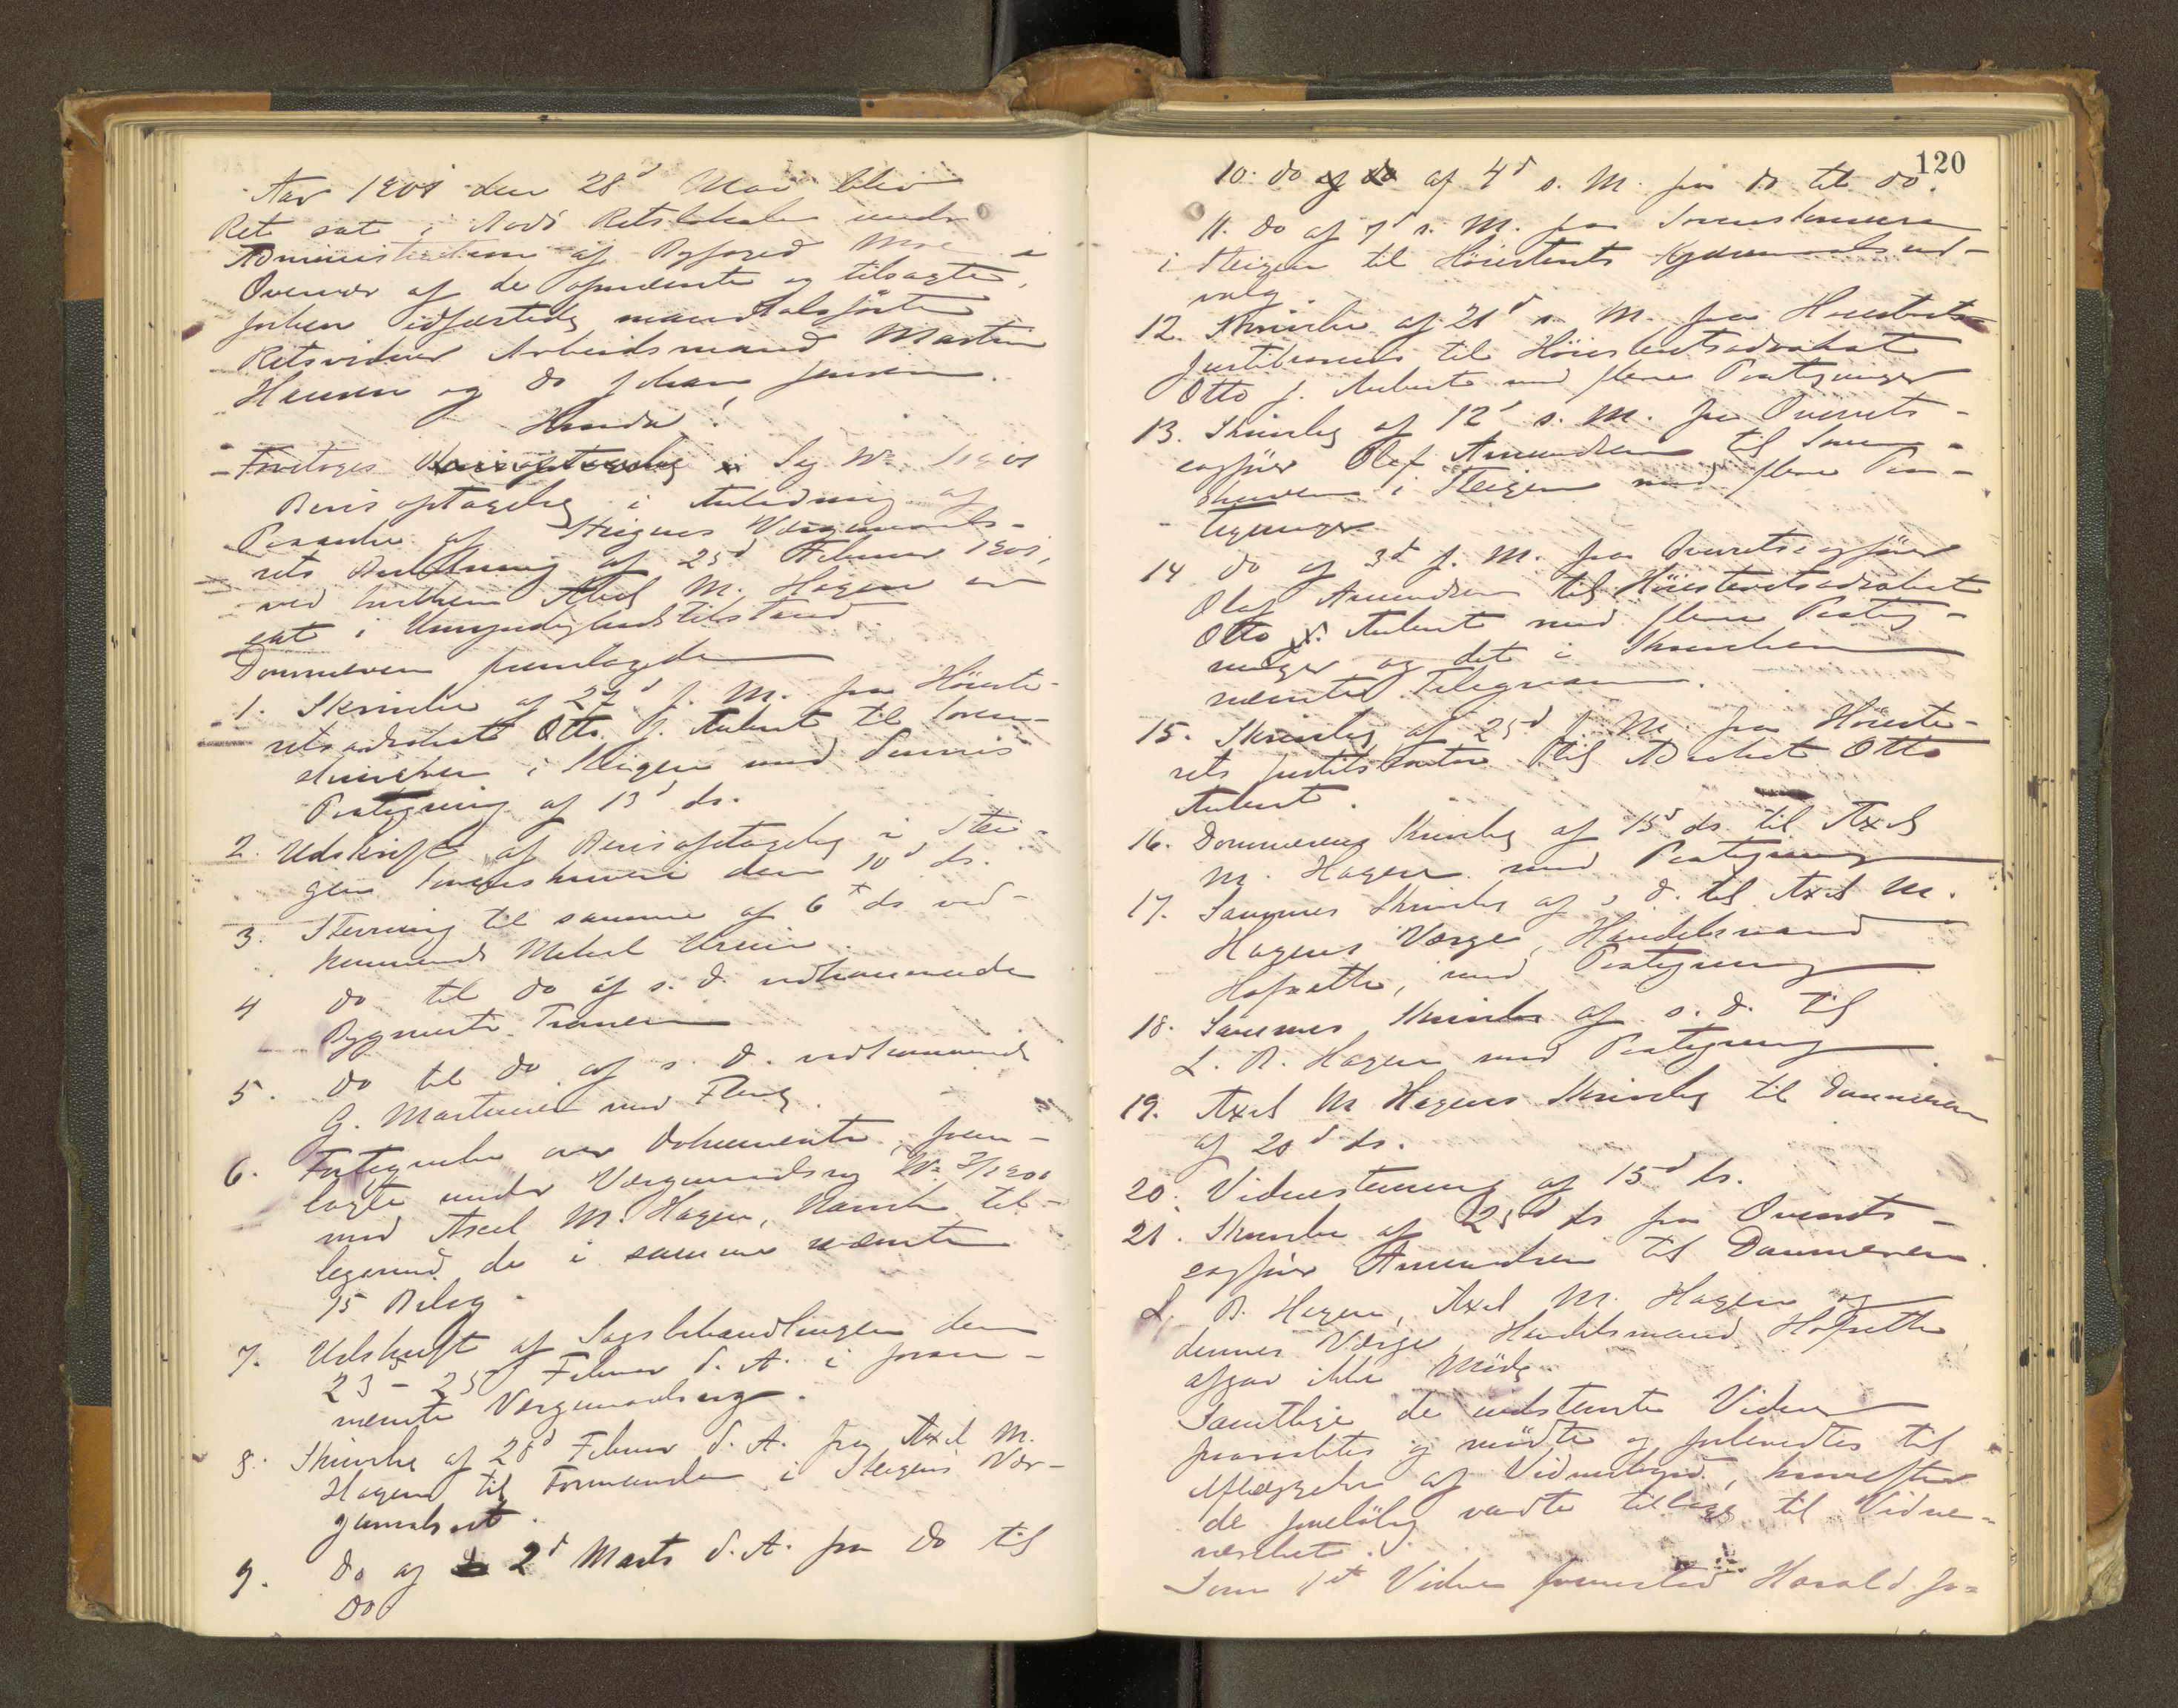 Aar 1901 den 28d Mai blev
Ret sat i Bodø Retslokale under
Administration af Byfoged Moe i
Overvær af de opnævnte og tilsagte,
forhen edfæstede mandtalsførte
Retsvidner Arbeidsmand Martin
Hansen og do Johan Jensen.
Hvorda!
Foretoges Sag No 1901
Bevisoptagelse i Anledning af
Paaanke af Steigens Værgemaals-
rets Beslutning af 25d Februar 1901,
ved hvilken Axel M. Hagen er
sat i Umyndighedstilstand
Dommeren fremlagde
1. Skrivelse af 27d f. M. fra Høieste-
retsadvokat Otto J. Aubert til Soren-
skriveren i Steigen med Dennes
Paategning af 13d ds.
2. Udskrift af Bevisoptagelse i Stei-
gen Sorenskriveri den 10d ds.
3. Stevning til samme af 6t ds ved-
kommende
4 do til do af s. D. vedkommende
Bygmester
5. do til do af s. D. vedkommende
G. Martinsen med Flere.
6. Fortegnelse over Dokumenter frem-
lagte under Værgemaalssag No 2/1901
mod Axel M. Hagen, Hamsk til-
ligemed de i samme nævnte
15 Bilag.
7. Udskrift af Sagsbehandlingen den
23-25d Februar d. A. i foran-
nævnte Værgemaalssag.
8. Skrivelse af 28d Februar d. A. fra Axel M.
Hagen til Formanden i Steigens Vær-
gemaalsret.
9. do af 2d Marts d. A. fra do til
do
120
10. do af 4d s. M. fra do til do.
11. do af 7d s. M. fra Sorenskriveren
i Steigen til Høiesterets Kjæremaalsud-
valg
12. Skrivelse af 21d s. M. fra Høiesterets
Justitiarius til Høiesteretsadvokat
Otto J. Aubert med flere Paategninger
13. Skrivelse af 12d s. M. fra Overrets-
sagfører Olaf Amundsen til Soren-
skriveren i Steigen med flere Paa-
tegninger
14 do af 3d f. M. fra Overretssagfører
Olaf Amundsen til Høiesteretsadvokat
Otto J. Aubert med flere Paateg-
ninger og det i Skrivelsen
nævnte Telegram.
15. Skrivelse af 25d f. M. fra Høieste-
rets Justitskontor til Advokat Otto
Aubert.
16. Dommerens Skrivelse af 15d ds. til Axel
M. Hagen med Paategning
17. Sammes Skrivelse af s. D. til Axel M.
Hagens Værge, Handelsmand
Hofsætte, med Paategning
18. Sammes Skrivelse af s. D. til
L. B. Hagen med Paategning
19. Axel M Hagens Skrivelse til Dommeren
af 20d ds.
20. Vidnestevning af 15d ds.
21. Skrivelse af 25d ds fra Overrets-
sagfører Amundsen til Dommeren.
L. B. Hagen, Axel M. Hagen og
dennes Værge Handelsmand Hofsætte
afgav ikke Møde.
Samtlige de indstevnte Vidner
fremstilles og mødte og forberedtes til
Aflæggelse af Vidnesbyrd, hvorefter
de foreløbig vendte tilbage til Vidne-
værelset.
Som 1ste Vidne fremstod Harald Jo-